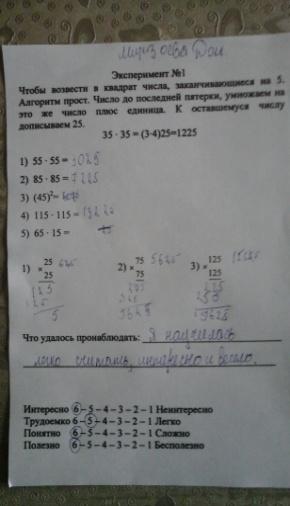 Эксперимент №1
Чтобы возвести в квадрат числа, заканчивающиеся на 5.
Алгоритм прост. Число до последней пятерки, умножаем на
это же число плюс единица. К оставшемуся числу
дописываем 25.
35 · 35 = (3·4)25=1225
1) 55 · 55 = 3025
2) 85 · 85 = 7225
3) (45)²=
4) 115 · 115 = 13225
5) 65 · 15 =
1) ×25 625
25
125
5
2) ×75 5625
75
5625
3) ×125 15625
125
Что удалось пронаблюдать: Я научилась
легко считать, интересно и весело.
Интересно 6 – 5 – 4 – 3 – 2 – 1 Неинтересно
Трудоемко 6 – 5 – 4 – 3 – 2 – 1 Легко
Понятно 6 – 5 – 4 – 3 – 2 – 1 Сложно
Полезно 6 – 5 – 4 – 3 – 2 – 1 Бесполезно